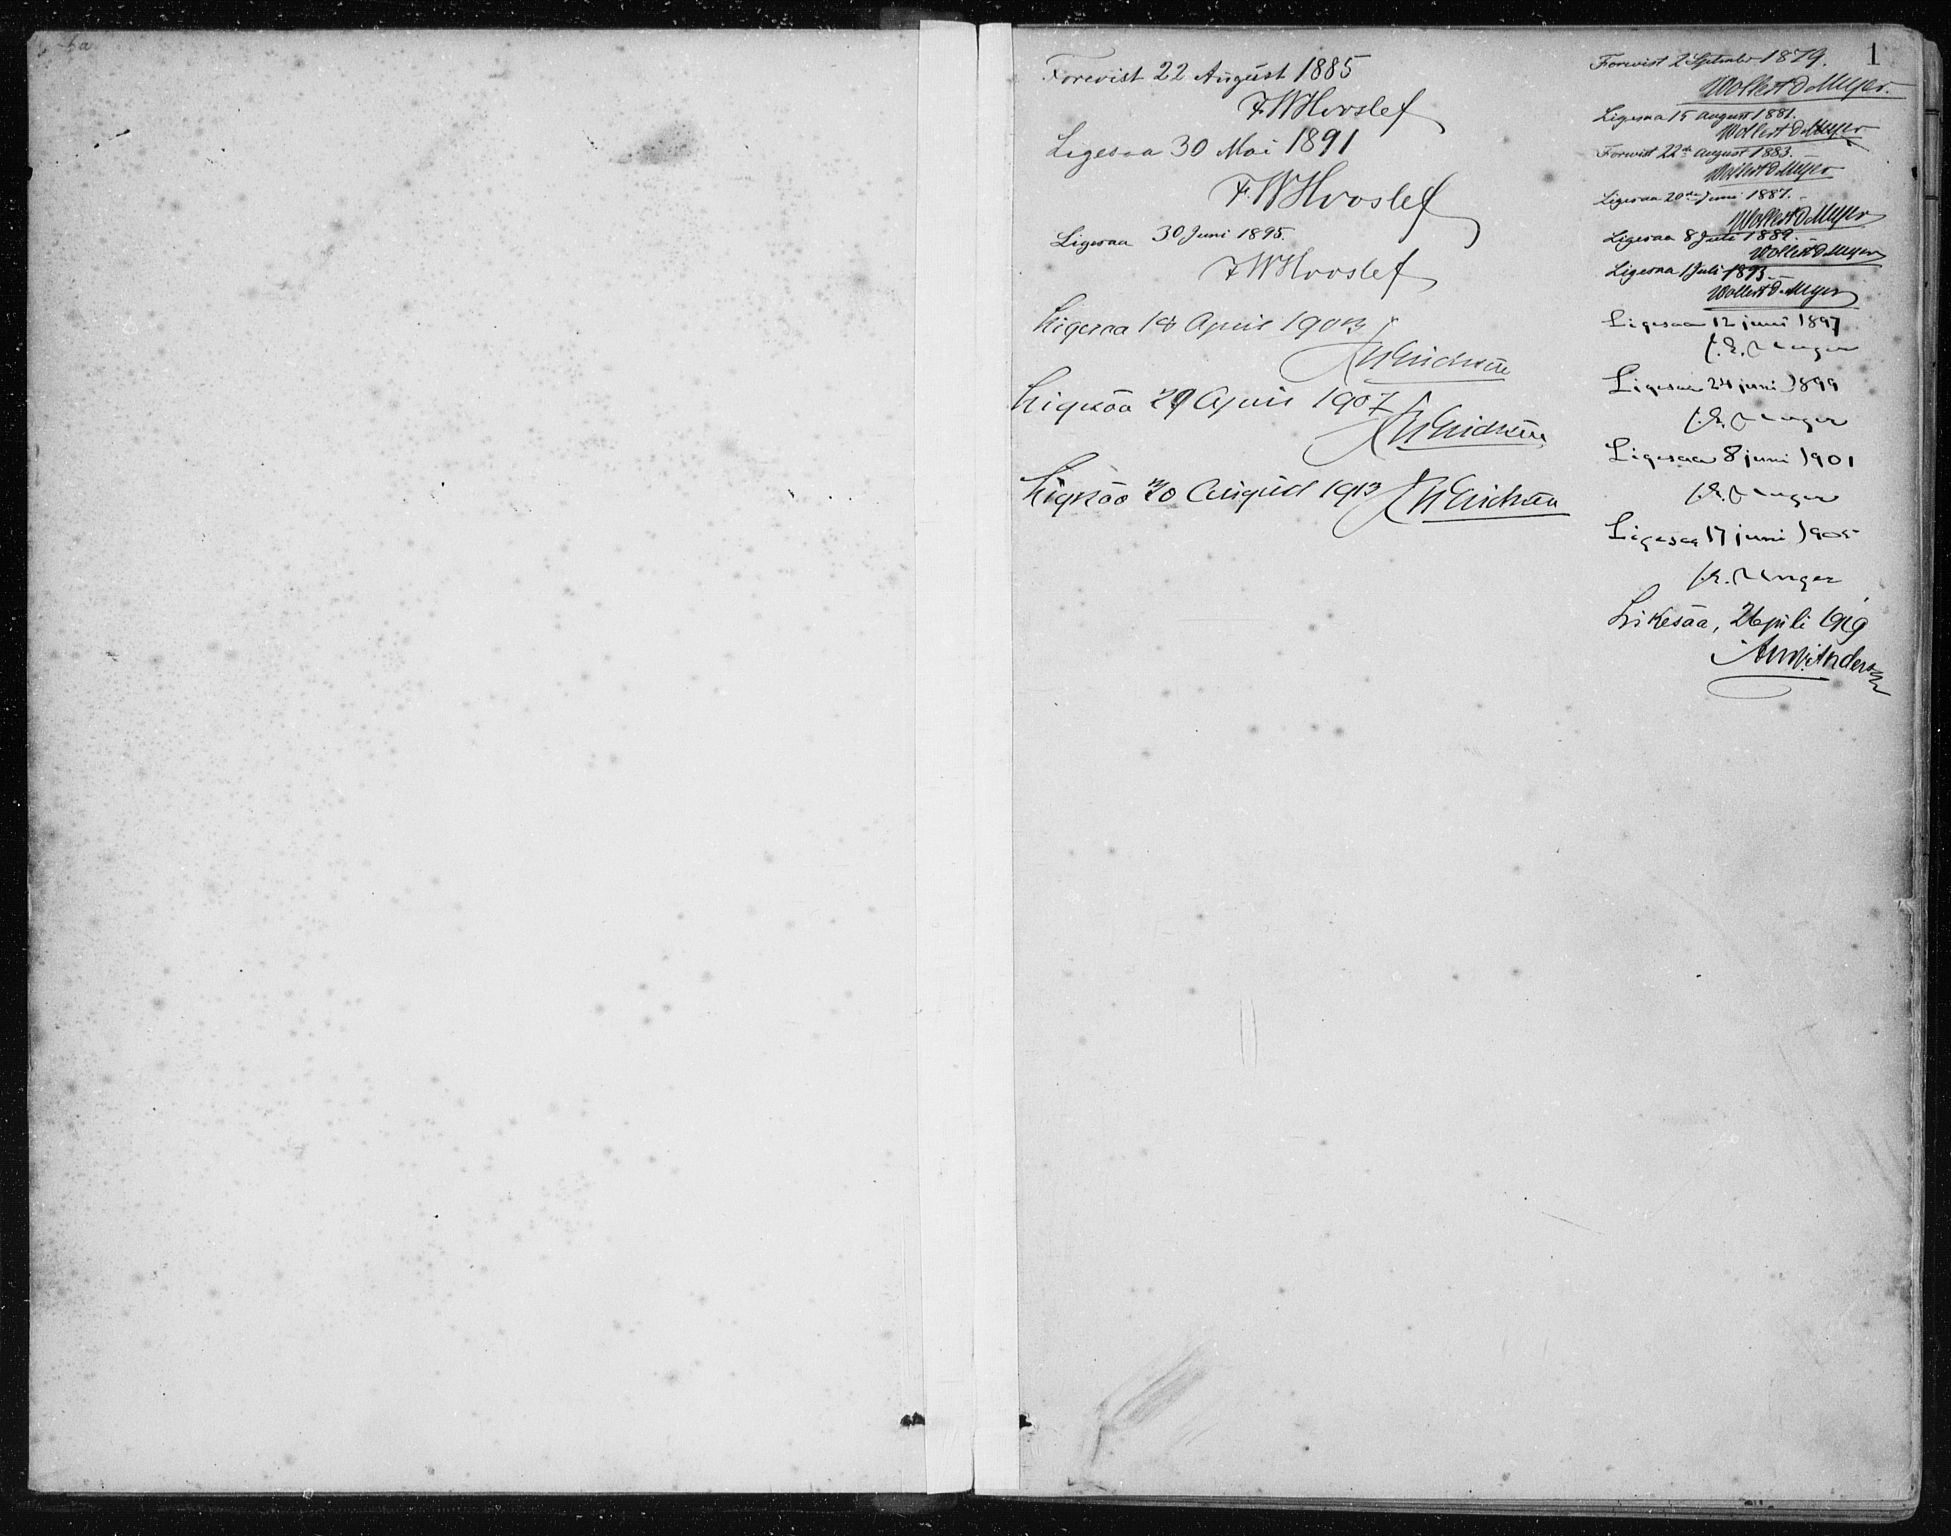 1
Forevist 22 August 1885
F. W Hvoslef
Ligesaa 30 Mai 1891
F. W Hvoslef
Ligesaa 30 Juni 1895.
F W Hvoslef
Ligesaa 18 April 1903
Ligesaa 29 April 1907
Ligesaa 30 August 1913
Forevist 2 September 1879.
Wollert D Meyer.
Ligesaa 15 August 1881.
Wollert D Meyer
Forevist 22de August 1883.
Wollert D Meyer
Ligesaa 20de Juni 1887.
Wollert D. Meyer
Ligesaa 8 Juli 1889.
Wollert D Meyer
Ligesaa 1 Juli 1893
Wollert D. Meyer
Ligesaa 12 juni 1897
J. E. Unger
Ligesaa 24 juni 1899
J. E. Unger
Ligesaa 8 juni 1901
J. E. Unger
Ligesaa 17 juni 1905
J. E. Unger
Likesaa, juli 1919
Anderssen